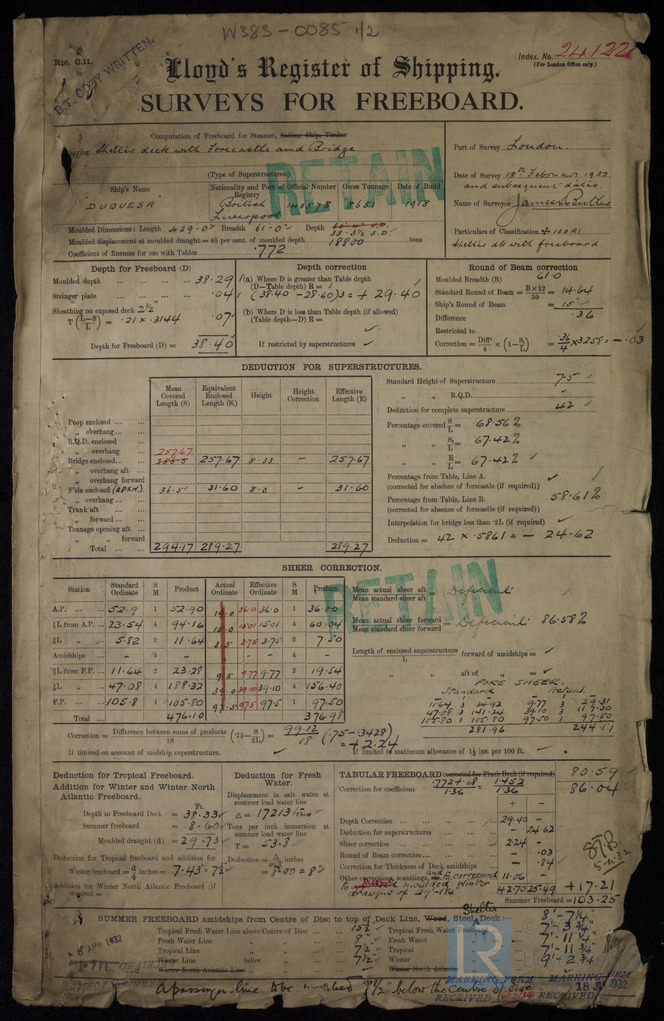 W383-0085 1/2
Rpt. C.11.
B.T. COPY WRITTEN.
Index. No. 24122
(For London Office only.)
Lloyd's Register of Shipping.
SURVEYS FOR FREEBOARD.
Computation of Freeboard for Steamer, Sailing Ship, Tanker
Shelter deck with Forecastle and Bridge
(Type of Superstructures.)
RETAIN
Port of Survey London
Date of Survey 18th February 1932
and subsequent dates.
Name of Surveyor James
Particulars of Classification +100A1
Shelter dk with freeboard.
Ship's Name Nationality and Port of Registry Official Number Gross Tonnage Date of Build
"DUQUESA" British Liverpool 8651 1918
Moulded Dimensions: Length 429.0 Breadth 61.0 Depth
38.3½ S.D.
Moulded displacement at moulded draught = 85 per cent. of moulded depth 18800 tons
Coefficient of fineness for use with Tables .772
Depth for Freeboard (D)
Moulded depth ... 38.29
Stringer plate ... .04
Sheathing on exposed deck 2½
T (L-S/L) = .21 × .3144 .07
Depth for Freeboard (D) = 38.40
Depth correction
(a) Where D is greater than Table depth
(D—Table depth) R =
(38.40 - 28.60) 3 = + 29.40
(b) Where D is less than Table depth (if allowed)
(Table depth—D) R =
If restricted by superstructures
Round of Beam correction
Moulded Breadth (B) 61.0
Standard Round of Beam = B×12/50 = 14.64
Ship's Round of Beam = 15
Difference .36
Restricted to
Correction = Diff/4 × (1-S/L) = .36/4 × .3258 = -.03
DEDUCTION FOR SUPERSTRUCTURES.
Mean Covered Length (S) Equivalent Enclosed Length (S₁) Height Height Correction Effective Length (E)
Poop enclosed ...
„ overhang ...
R.Q.D. enclosed
„ overhang 257.67
Bridge enclosed... 257.67 8.33 - 257.67
„ overhang aft
„ overhang forward
F'cle enclosed (OPEN) 36.5 31.60 8.0 - 31.60
„ overhang ...
Trunk aft
„ forward ...
Tonnage opening aft
„ forward
Total ... 294.17 289.27 289.27
Standard Height of Superstructure 7.5
„ „ R.Q.D. -
Deduction for complete superstructure 42
Percentage covered S/L = 68.56%
„ S₁/L = 67.42%
„ E/L = 67.42%
Percentage from Table, Line A.
(corrected for absence of forecastle (if required))
Percentage from Table, Line B. 58.61%
(corrected for absence of forecastle (if required))
Interpolation for bridge less than .2L (if required)
Deduction = 42 × .5861 = - 24.62
SHEER CORRECTION.
Station Standard Ordinate S M Product Actual Ordinate Effective Ordinate S M Product
A.P. 52.9 1 52.90 36.0 36.0 1 36.00
⅙L from A.P. 23.54 4 94.16 15.01 15.01 4 60.04
⅓L „ 5.82 2 11.64 3.75 3.75 2 7.50
Amidships - 4 - - 4 -
⅓L from F.P. 11.64 2 23.28 9.5 9.77 9.77 2 19.54
⅙L „ 47.08 4 188.32 39.0 39.10 39.10 4 156.40
F.P. 105.8 1 105.80 97.5 97.5 97.5 1 97.50
Total ... 476.10 376.98
RETAIN
Mean actual sheer aft = Deficient
Mean standard sheer aft
Mean actual sheer forward = Deficient 86.58%
Mean standard sheer forward
Length of enclosed superstructure forward of amidships =
L
„ aft of „ =
FORE SHEER.
Standard Actual
11.64 3 34.92 9.77 3 29.31
47.08 3 141.24 39.10 3 117.30
105.80 1 105.80 97.50 1 97.50
281.96 244.11
Correction = Difference between sums of products/18 (.75-S/2L) = 99.12/18 (.75-.3428)
= + 2.24
If limited on account of midship superstructure.
If limited to maximum allowance of 1½ ins. per 100 ft.
Deduction for Tropical Freeboard.
Addition for Winter and Winter North
Atlantic Freeboard.
Ft.
Depth to Freeboard Deck = 38.33
Summer freeboard = 8.60
Moulded draught (d) = 29.73
Deduction for Tropical freeboard and addition for
Winter freeboard = d/4 inches = 7.43 = 7½
Addition for Winter North Atlantic Freeboard (if
required =
Deduction for Fresh
Water.
Displacement in salt water at
summer load water line
Δ = 17213 tons
Tons per inch immersion at
summer load water line
T = 53.8
Deduction = Δ/40T inches
= 8.00 = 8"
TABULAR FREEBOARD corrected for Flush Deck (if required) 80.59
Correction for coefficient .772+.68/1.36 = 1.452/1.36 86.04
+ -
Depth Correction ... 29.40 -
Deduction for superstructures ... - 24.62
Sheer correction ... 2.24 -
Round of Beam correction ... - .03
Correction for Thickness of Deck amidships ... - .84
Other corrections, scantlings, 11.06
42.70 25.49 + 17.21
Summer Freeboard = 103.25
SUMMER FREEBOARD amidships from Centre of Disc to top of Deck Line, Wood, Steel, Deck: Shelter 8'-7¼"
Tropical Fresh Water Line above Centre of Disc ... 15½
Fresh Water Line „ „ ... 8
Tropical Line „ „ ... 7½
Winter Line below „ ... 7½
Winter North Atlantic Line „ „
Tropical Fresh Water 7'-3¾"
Fresh Water 7'-11¼"
Tropical 7'-11¾"
Winter 9'-2¾"
Winter North Atlantic
8 APR 1932
MARKING FORM
RECEIVED
MARKING FORM
18 JY 1932
RECEIVED
A passenger line to be marked 7½" below the Centre of disc